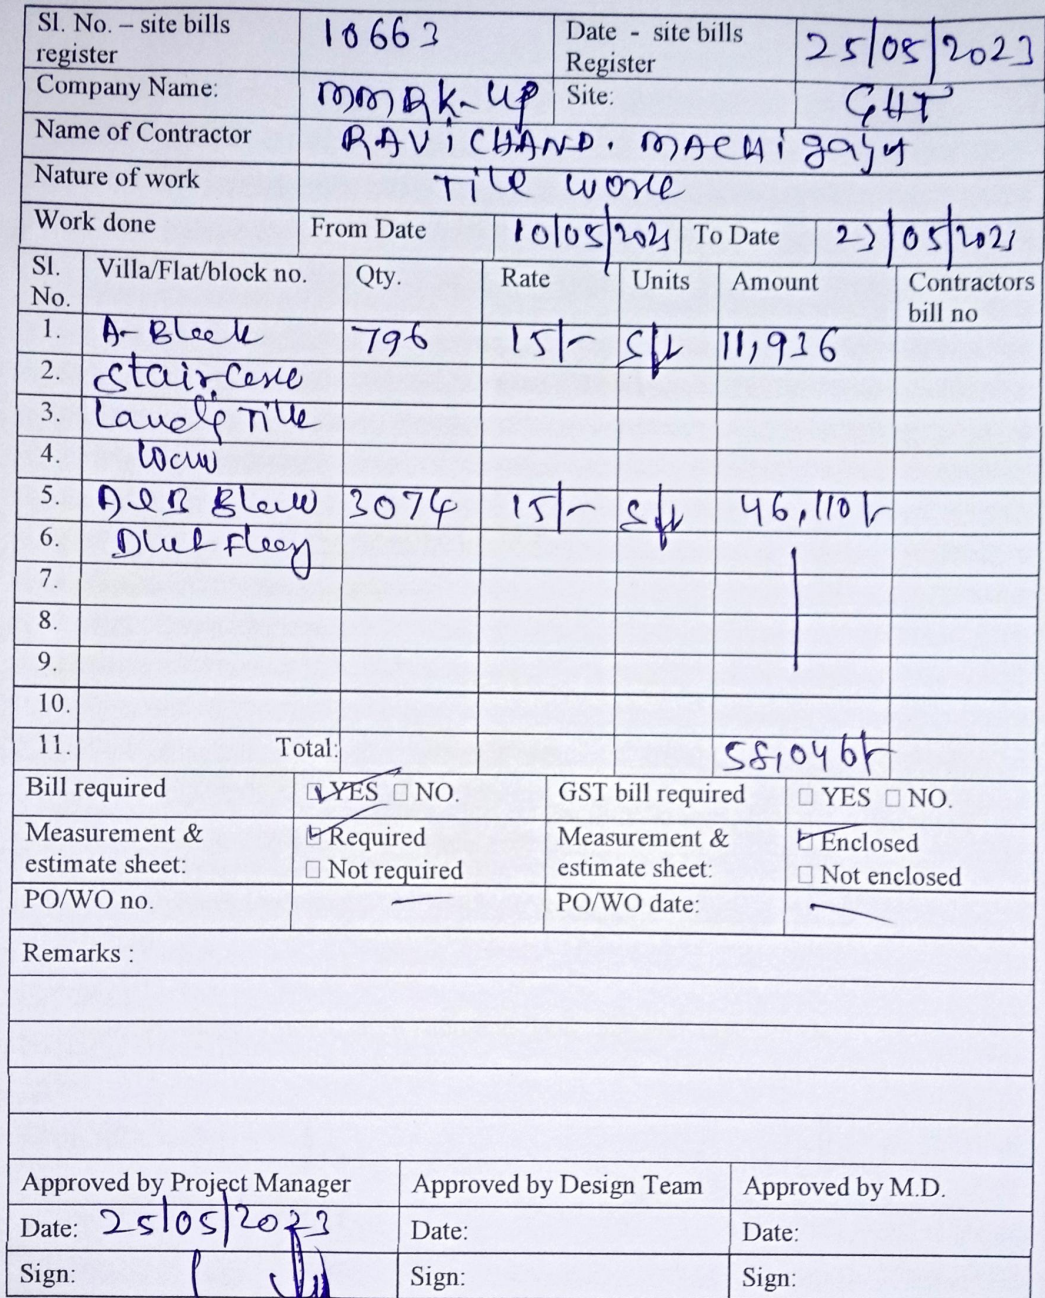 Sl. No. - site bills register 10663 Date - site bills Register 25/05/2023
Company Name: MMRK-UP Site: GHT
Name of Contractor RAVICHAND. MACHigajy
Nature of work Tile work
Work done From Date 10/05/2023 To Date 23/05/2023
Sl. No. Villa/Flat/block no. Qty. Rate Units Amount Contractors bill no
1. A-Block 796 15/- Sft 11,936
2. Staircase
3. Tile
4.
5. A&B Block 3074 15/- Sft 46,110/-
6. Duct
7.
8.
9.
10.
11. Total: 58,046/-
Bill required YES NO. GST bill required YES NO.
Measurement & estimate sheet: Required Measurement & estimate sheet: Enclosed
Not required Not enclosed
PO/WO no. - PO/WO date: -
Remarks :
Approved by Project Manager Approved by Design Team Approved by M.D.
Date: 25/05/2023 Date: Date:
Sign: Sign: Sign: